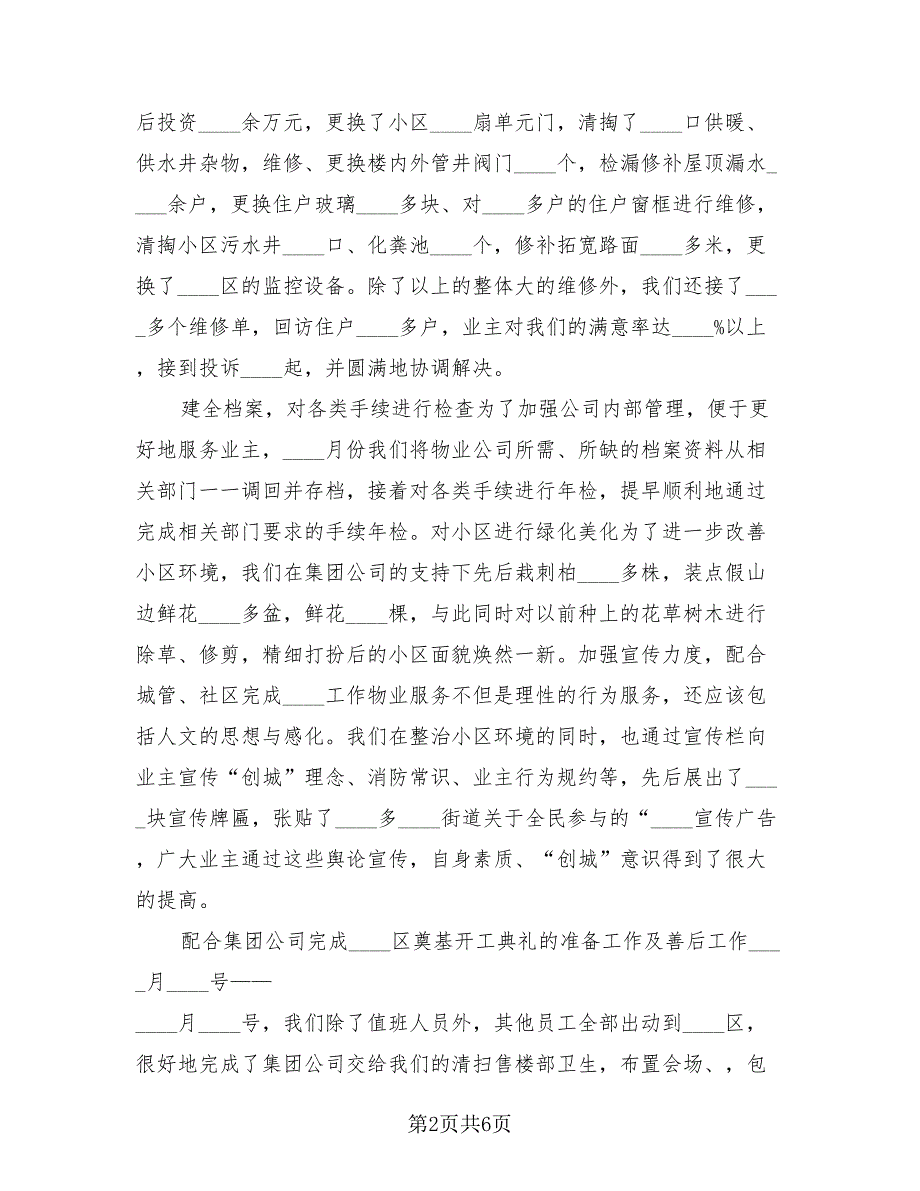 后投资____余万元，更换了小区____扇单元门，清掏了____口供暖、
供水井杂物，维修、更换楼内外管井阀门____个，检漏修补屋顶漏水_
___余户，更换住户玻璃____多块、对____多户的住户窗框进行维修，
清掏小区污水井____口、化粪池____个，修补拓宽路面____多米，更
换了____区的监控设备。除了以上的整体大的维修外，我们还接了___
_多个维修单，回访住户____多户，业主对我们的满意率达____%以上
，接到投诉____起，并圆满地协调解决。
建全档案，对各类手续进行检查为了加强公司内部管理，便于更
好地服务业主，____月份我们将物业公司所需、所缺的档案资料从相
关部门一一调回并存档，接着对各类手续进行年检，提早顺利地通过
完成相关部门要求的手续年检。对小区进行绿化美化为了进一步改善
小区环境，我们在集团公司的支持下先后栽刺柏____多株，装点假山
边鲜花____多盆，鲜花____棵，与此同时对以前种上的花草树木进行
除草、修剪，精细打扮后的小区面貌焕然一新。加强宣传力度，配合
城管、社区完成____工作物业服务不但是理性的行为服务，还应该包
括人文的思想与感化。我们在整治小区环境的同时，也通过宣传栏向
业主宣传“创城”理念、消防常识、业主行为规约等，先后展出了___
_块宣传牌匾，张贴了____多____街道关于全民参与的“____宣传广告
，广大业主通过这些舆论宣传，自身素质、“创城”意识得到了很大
的提高。
配合集团公司完成____区奠基开工典礼的准备工作及善后工作___
_月____号——
____月____号，我们除了值班人员外，其他员工全部出动到____区，
很好地完成了集团公司交给我们的清扫售楼部卫生，布置会场、，包
第2页共6页